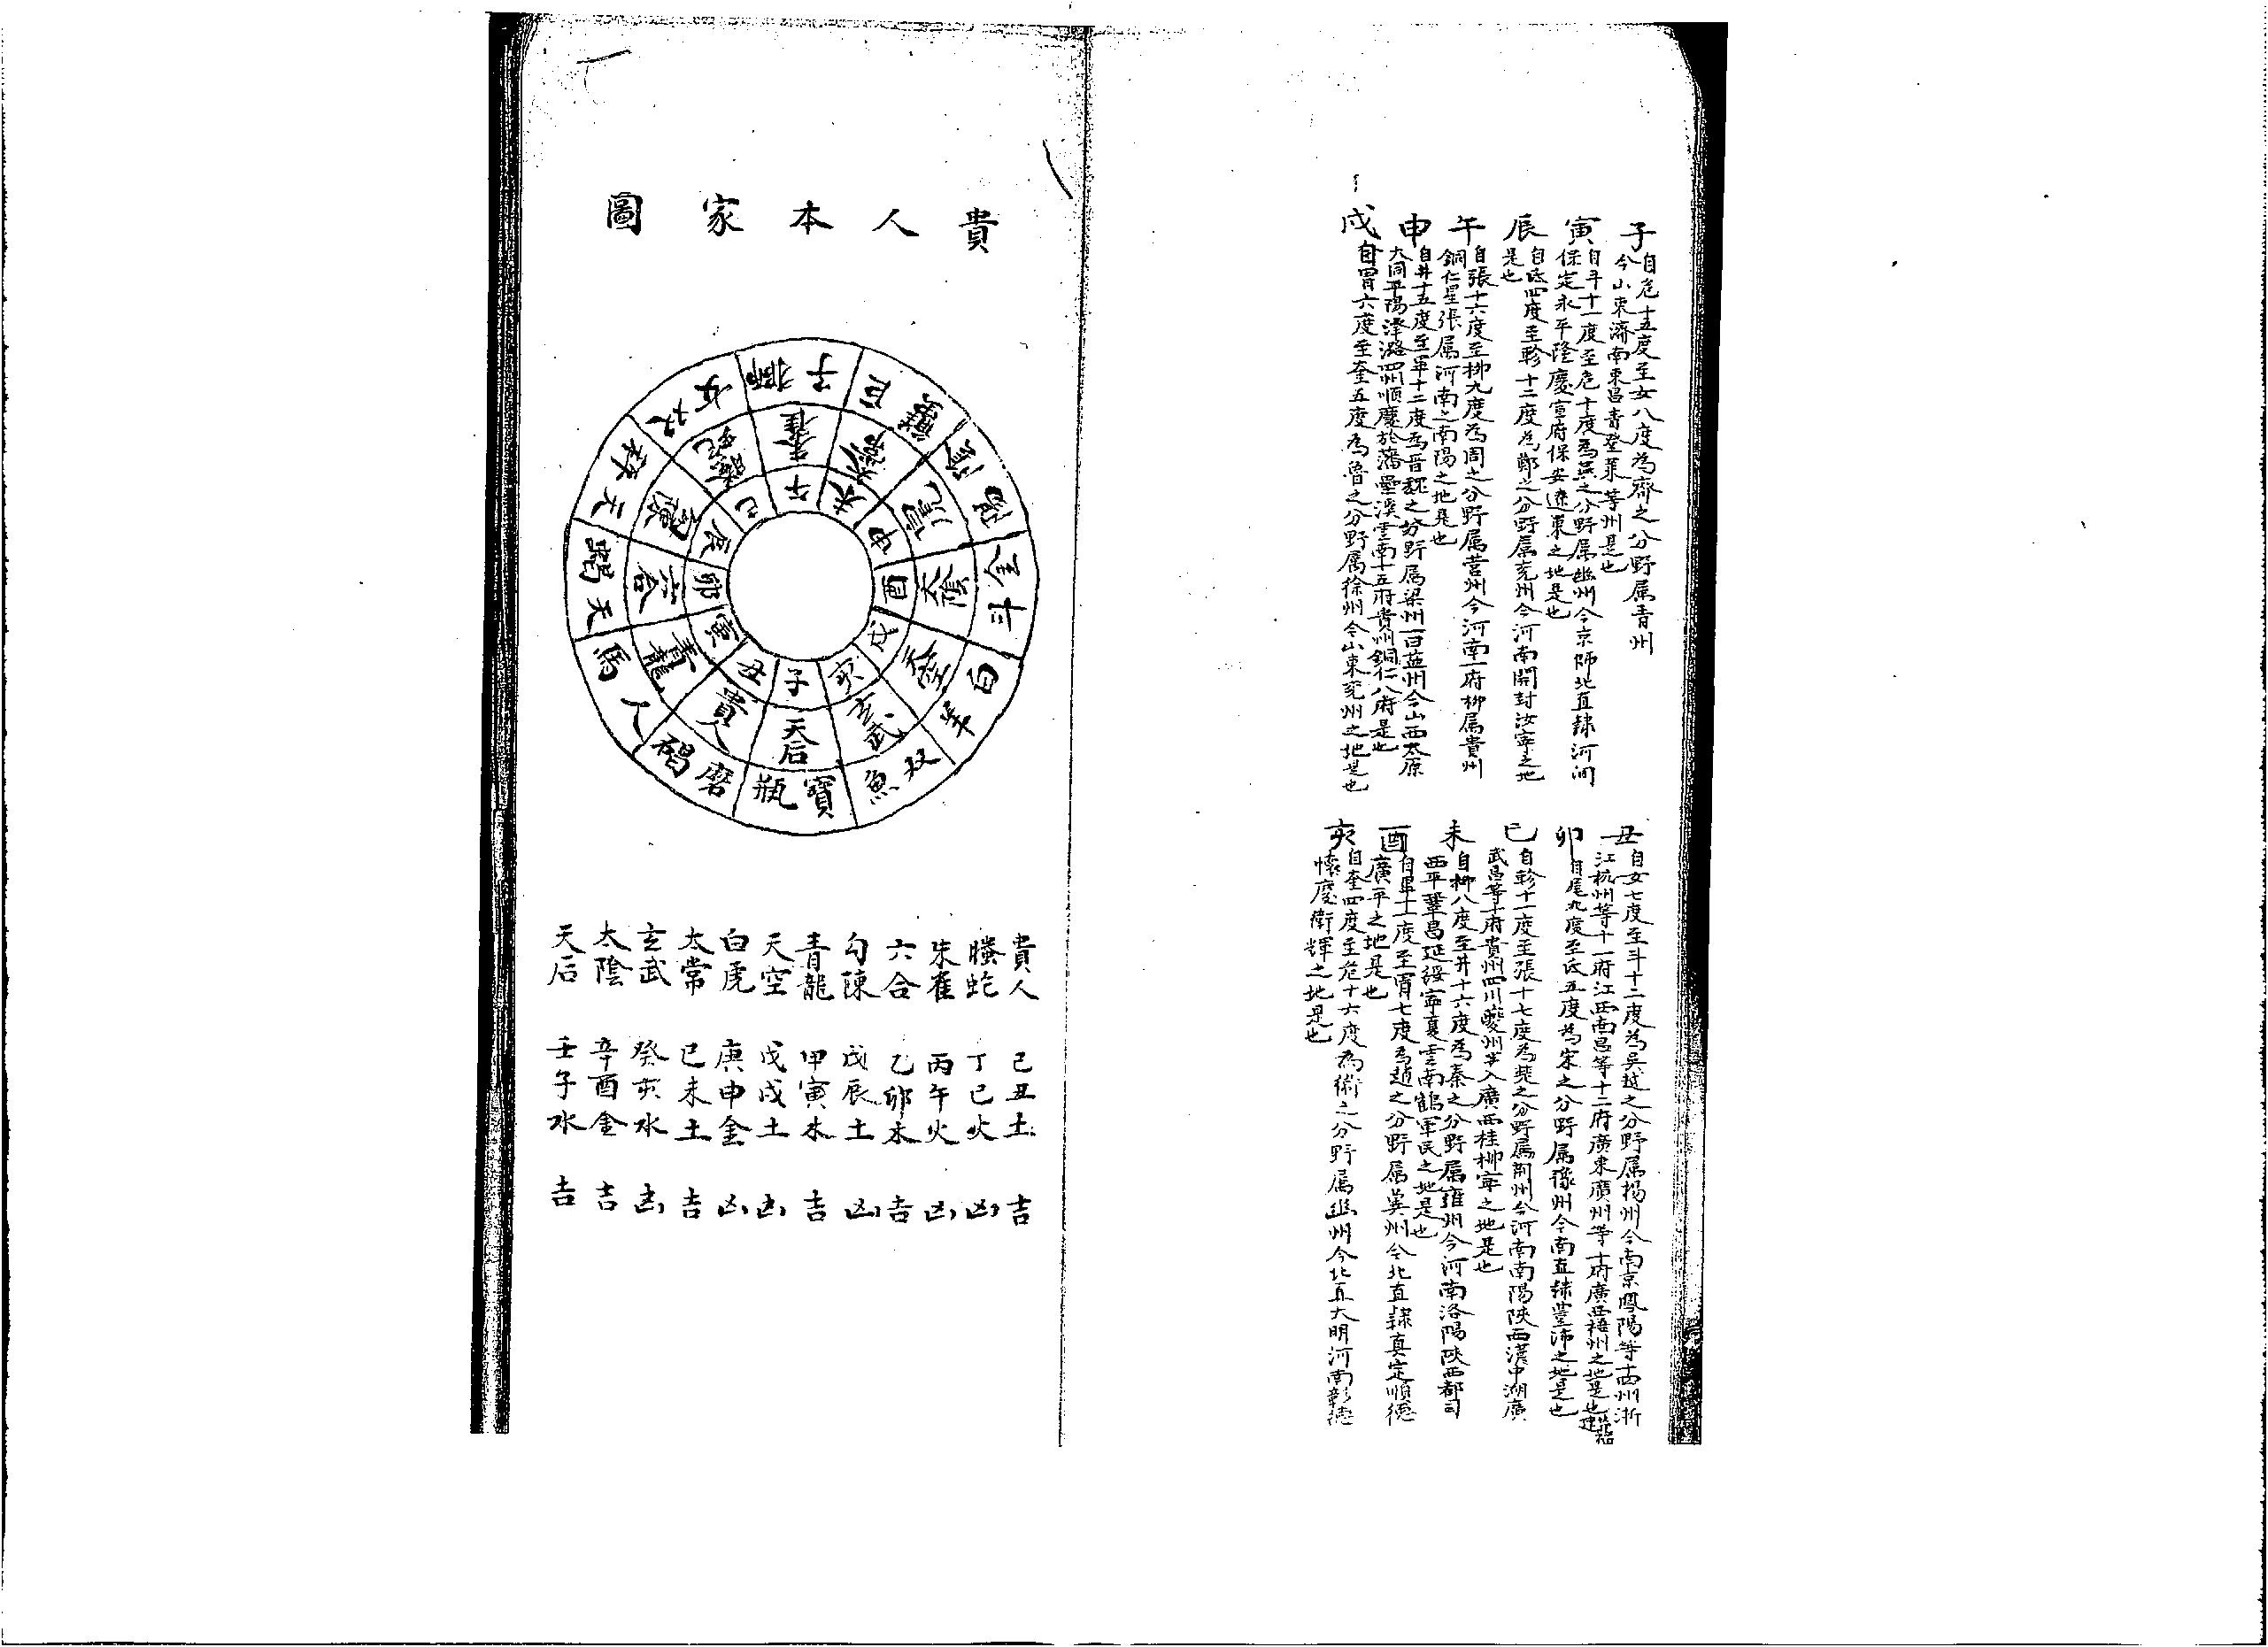 子
自危十五度至女八度為齊之分野屬青州
今山東濟南東昌青登萊等州是也
寅
自斗十一度至危十度為燕之分野屬幽州今京師北直隸河間
保定永平隆慶宣府保安遼東之地是也
辰
自氐四度至軫十二度為鄭之分野屬兗州今河南開封汝寧之地
是也
午
自張十六度至柳九度為周之分野屬營州今河南一府柳屬貴州
銅仁星張屬河南之南陽之地是也
申
自井十五度至畢十二度為晉魏之分野屬梁州一曰益州今山西太原
大同平陽澤潞四州順慶於潘壘溪雲南十五府貴州銅仁八府是也
戌
自胃六度至奎五度為魯之分野屬徐州今山東兗州之地是也
丑
自女七度至斗十二度為吳越之分野屬揚州今南京鳳陽等十四州浙
江杭州等十一府江西南昌等十二府廣東廣州等十府廣西梧州之地是也
卯
自尾九度至氐五度為宋之分野屬豫州今南直隸豐沛之地是也
巳
自軫十一度至張十七度為楚之分野屬荊州今河南南陽陝西漢中湖廣
武昌等十府貴州四川夔州半入廣西桂柳寧之地是也
未
自柳八度至井十六度為秦之分野屬雍州今河南洛陽陝西都司
西平鞏昌延綏寧夏雲南鶴軍民之地是也
酉
自畢十一度至胃七度為趙之分野屬冀州今北直隸真定順德
廣平之地是也
亥
自奎四度至危十六度為衛之分野屬幽州今北直大明河南彰德
懷慶衛輝之地是也
貴人本家圖
子 丑 寅 卯 辰 巳 午 未 申 酉 戌 亥
天后 貴人 青龍 六合 勾陳 螣蛇 朱雀 太常 白虎 太陰 天空 玄武
寶瓶 磨碣 人馬 天蝎 天秤 双女 獅子 巨蟹 陰陽 金牛 白羊 双魚
貴人 己丑土 吉
螣蛇 丁巳火 凶
朱雀 丙午火 凶
六合 乙卯木 吉
勾陳 戊辰土 凶
青龍 甲寅木 吉
天空 戊戌土 凶
白虎 庚申金 凶
太常 己未土 吉
玄武 癸亥水 凶
太陰 辛酉金 吉
天后 壬子水 吉